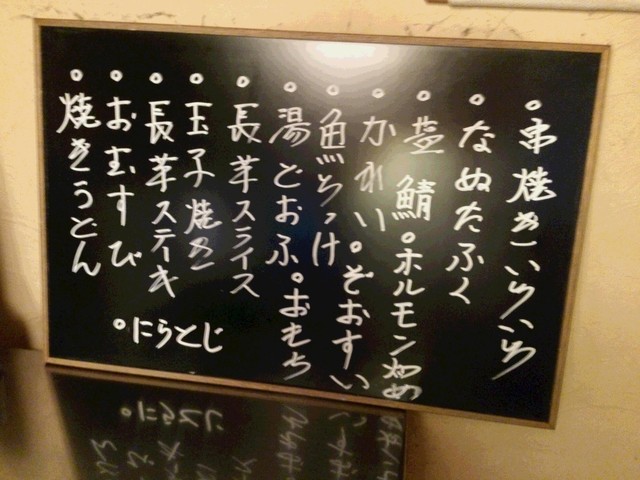 ○串焼きいろいろ
○なぬたふく
○鯖
○ホルモン炒め
○かれい
○ぞおすい
○魚ちっけ
○湯どおふ
○おもち
○長芋スライス
○玉子焼き
○長芋ステーキ
○おむすび
○焼きうどん
○にらとじ